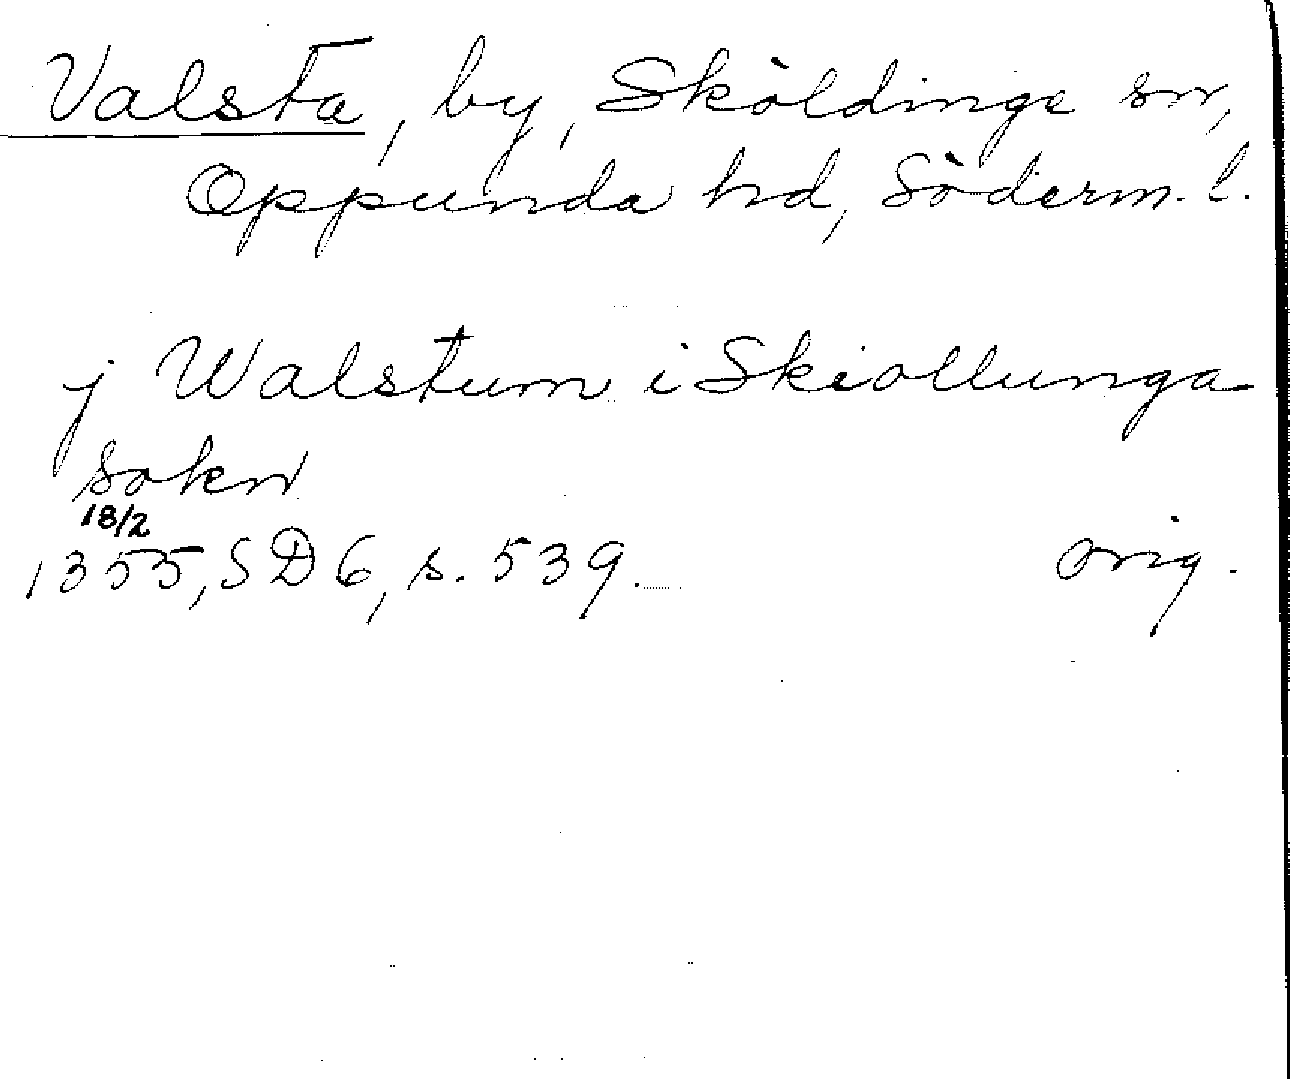 Valsta, by, Sköldinge sn,
Oppunda hd, Söderm. l.
j Walstum i Skiollunga
sokn
18/2
1355, SD 6, s. 539. orig.